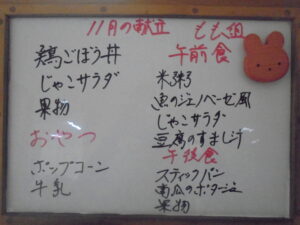 11月の献立
鶏ごぼう丼
じゃこサラダ
果物
おやつ
ポップコーン
牛乳
もも組
午前食
米粥
魚のジェノベーゼ風
じゃこサラダ
豆腐のすまし汁
午後食
スティックパン
南瓜のポタージュ
果物